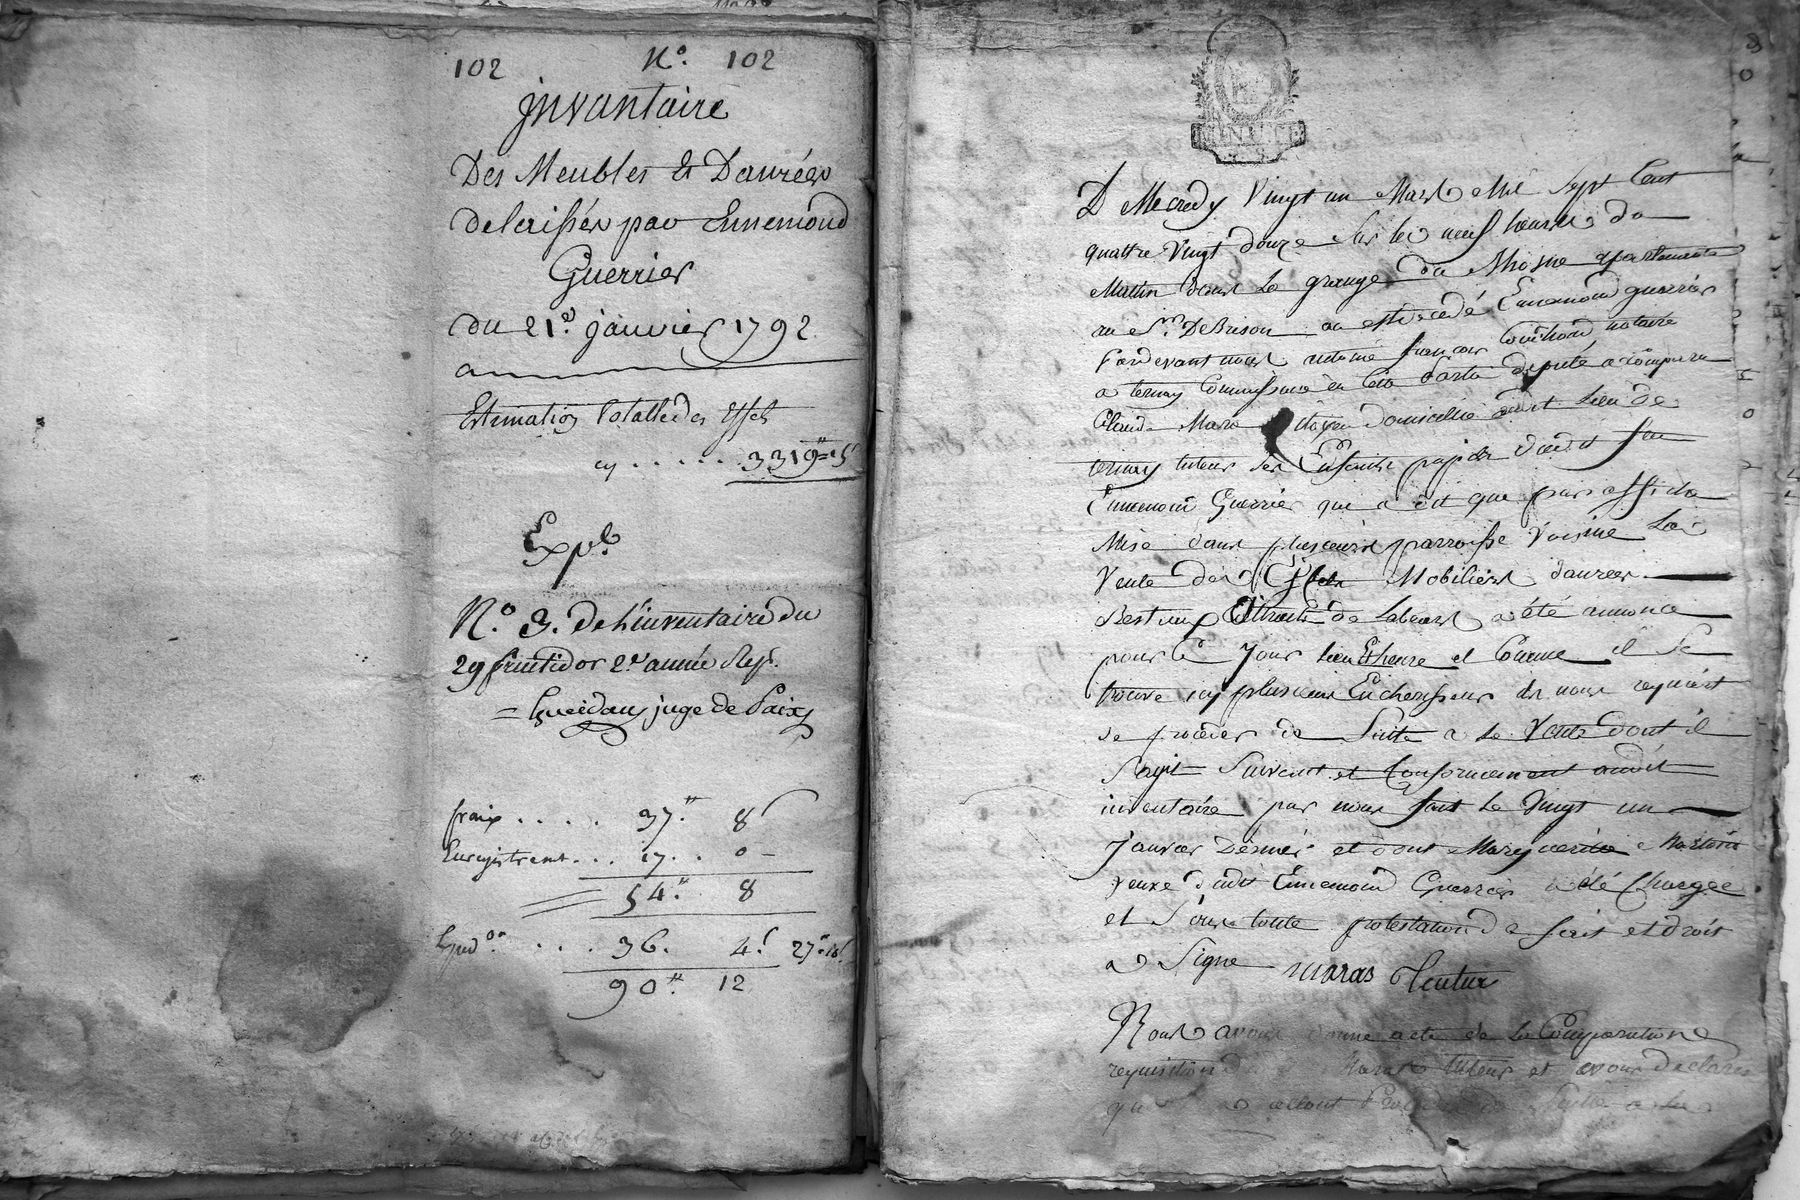 102 N.º 102
jnvantaire
Des Meubles & Danrées
delaissés par Ennemond
Guerrier
du 21.e janvier 1792
Estimation totalle des Effets
cy ..... 3319"=15
Exp.é
N.º 3. de l'inventaire du
29 fructidor 2.e année Rep.
= Gueidan juge de Paix
fraix .... 37." 8
Enregistrement ... 17.. 0 -
54." 8
... 36. 4. 27"
90." 12
MINUTE
D Mecredy Vingt un Mars Mil Sept Cent
quattre Vingt douze Sur les neuf heures du
Mattin dans la grange du Rhosne apartenante
au Sr. DeBrison ou est decedé Ennemond guerrier
Pardevant nous antoine françois Couchoud notaire
a ternay Commissaire en Cette Partie deputé, a comparu
Claude Maras Citoyen domicillié audit Lieu de
ternay tuteur des Enfants pupils dudit feu
Ennemond Guerrier qui a dit que par affiche
Mise dans plusieurs parroisse Voisine La
Vente des Effets Mobiliers danrées
Bestiaux Attraits de Labeurs a été annoncé
pour Ce Jour Lieu Et heure et Comme il Se
trouve icy plusieurs Encherisseurs il nous requiert
de proceder de Suitte a la Vente dont il
S'agit Suivant et Conformement audit
inventaire par nous fait Le Vingt un
Janvier Dernier et dont Marguerite
veuve dudit Ennemond Guerrier a été Chargée
et Sous toute protestation de fait et droit
a Signé maras tleutur
Nous avons donné acte de la Comparution
requisition du Maras tuteur et avons declaré
qu allons Proceder de Suitte a La